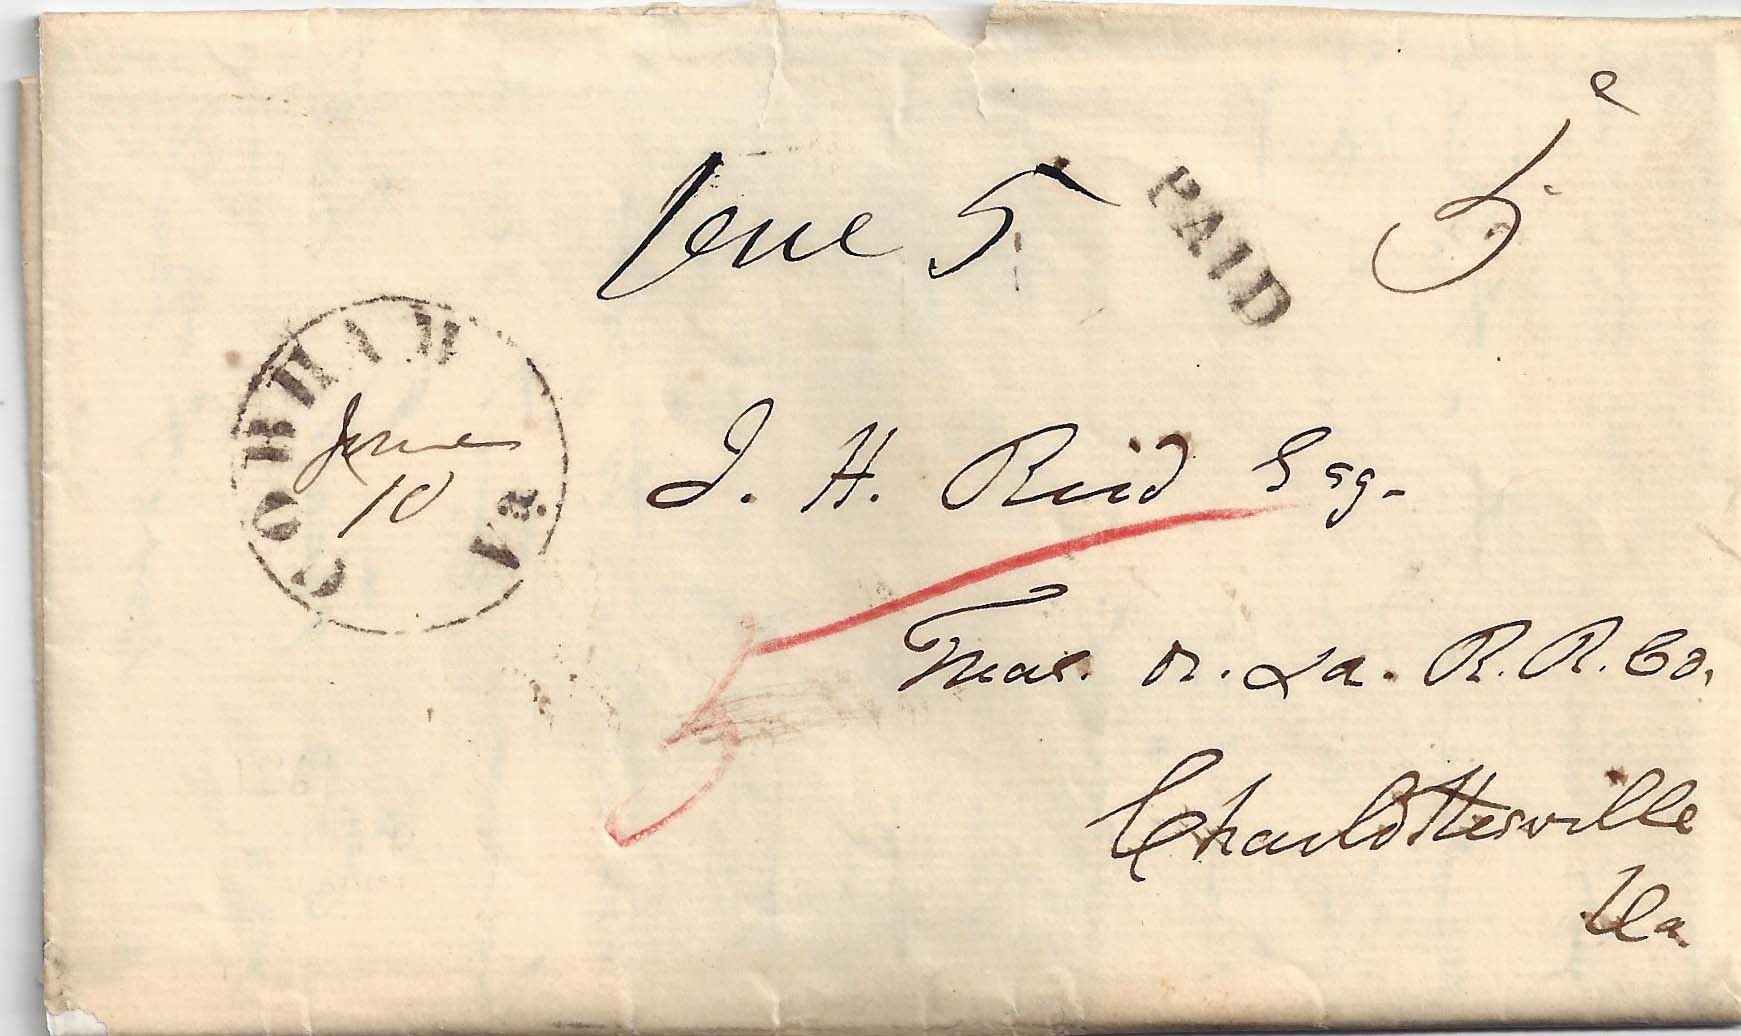 5
PAID
5c
COBHAM
Va.
June
10
J. H. Reid Esq.
5
Treas. R. R. Co.
Charlottesville
Va.